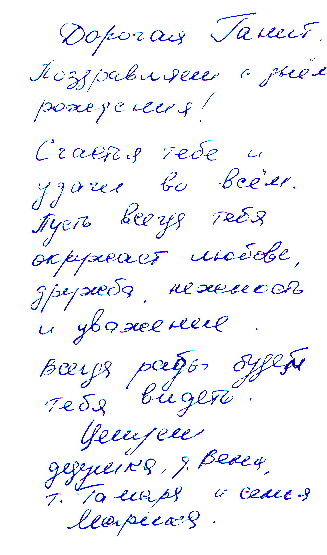 Дорогая Ганит.
Поздравляем с днём
рождения!
Счастья тебе и
удачи во всём.
Пусть всегда тебя
окружает любовь,
дружба, нежность
и уважение.
Всегда рады будем
тебя видеть.
Целуем
дедушка, д. Веня,
т. Тамара и семья
Марика.